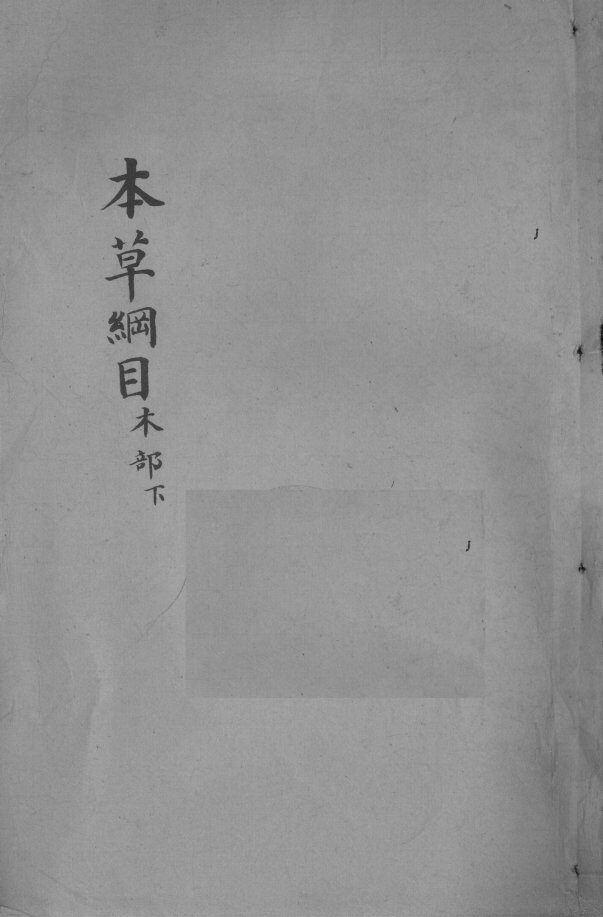 本草綱目木部下